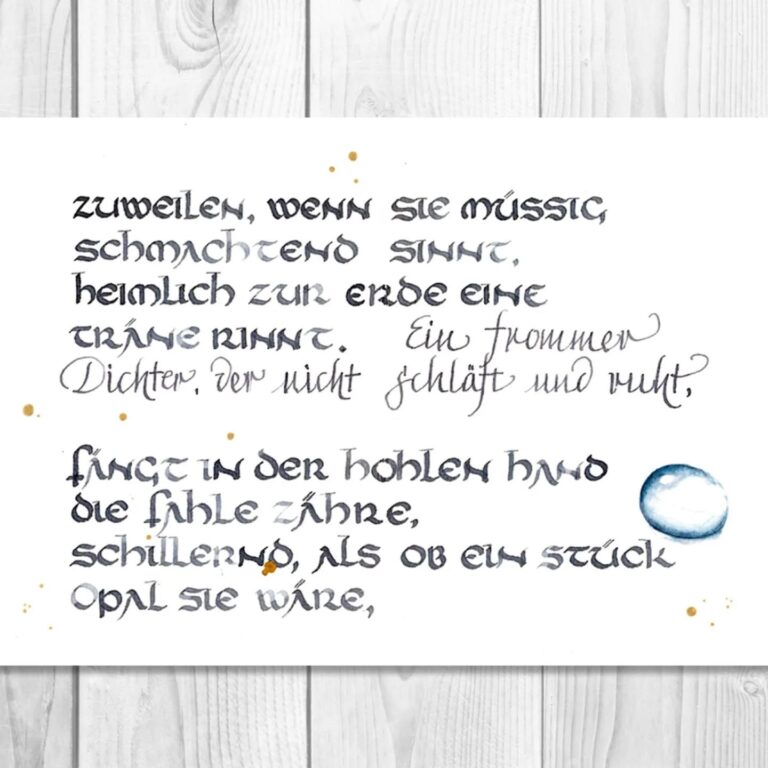 zuweilen, wenn sie müssig
schmachtend sinnt,
heimlich zur Erde eine
träne rinnt. Ein frommer
Dichter, der nicht schläft und ruht,
fängt in der hohlen hand
die fahle zähre,
schillernd, als ob ein stück
Opal sie wäre,